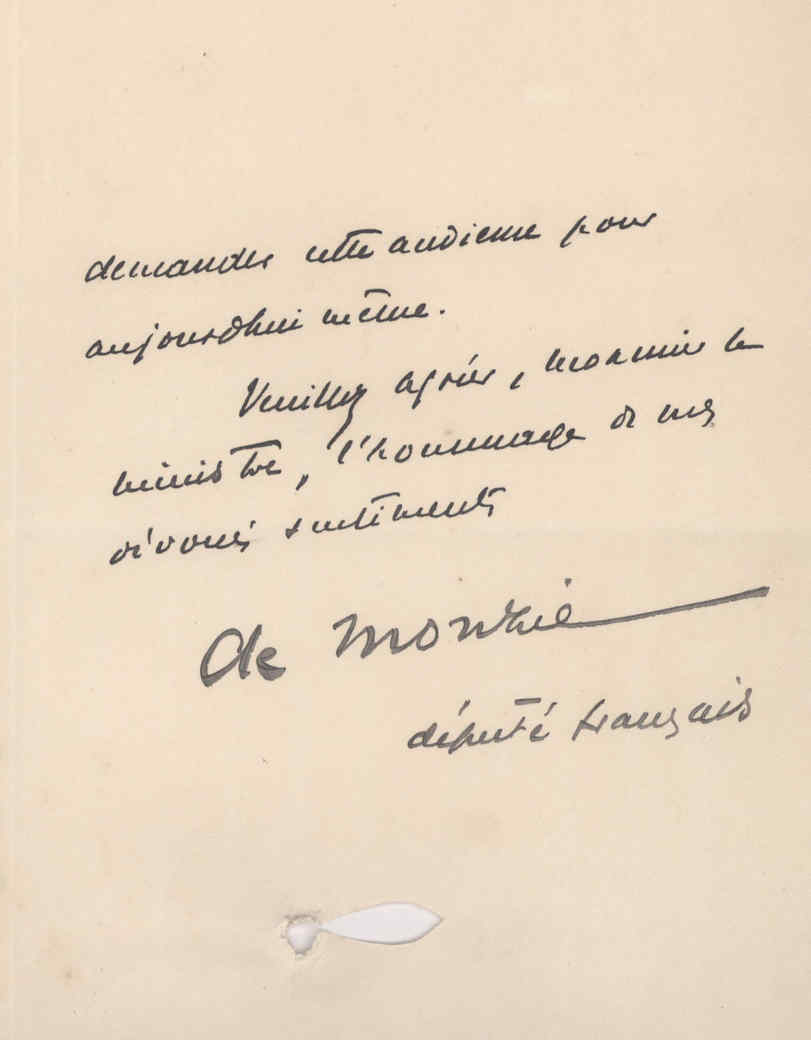 demander cette audience pour
aujourd'hui même.
Veuillez agréer, monsieur le
ministre, l'hommage de mes
dévoués sentiments
de Monzie
député français